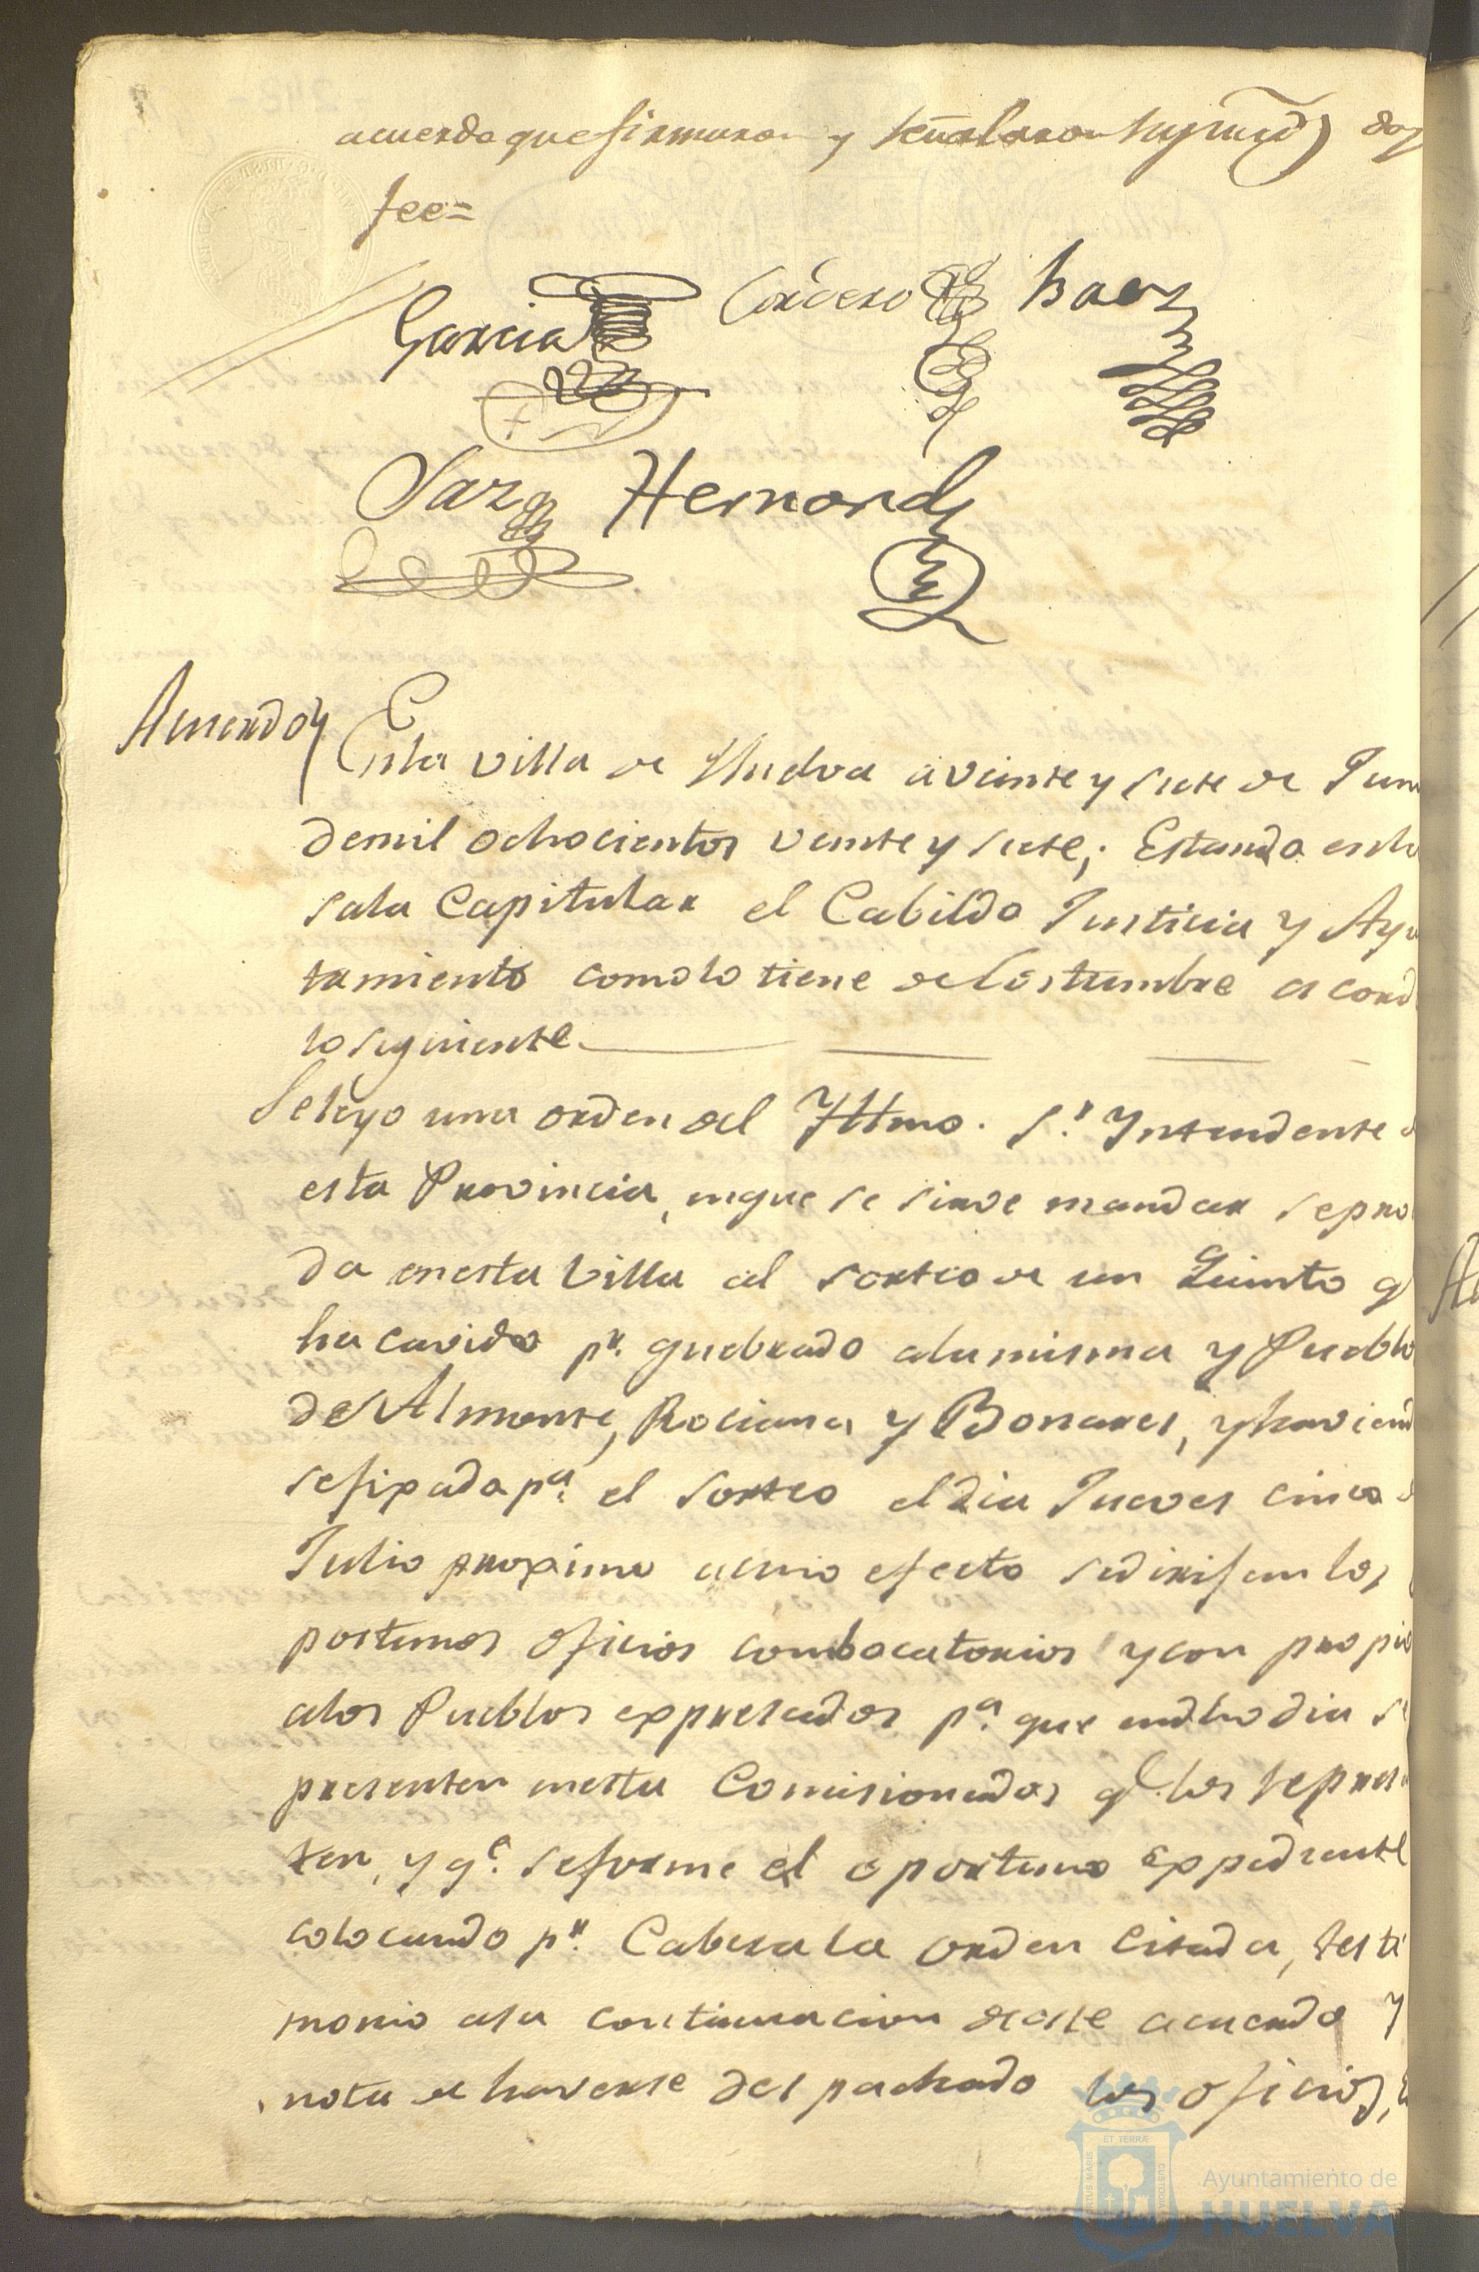 acuerdo que firmaron y señalaron sus mrds doy
fee=
Garcia
Cordero
Baez
Saez
Hernand
Acuerdo
En la villa de Huelva a veinte y siete de Jun
de mil ochocientos veinte y siete; Estando en la
sala Capitular el Cabildo Justicia y Ayu
tamiento como lo tiene de Costumbre acord
lo siguiente
Se leyo una orden del Yltmo. Sr. Yntendente d
esta Provincia, en que se sirve mandar se pro
da en esta Villa al sorteo de un Quinto q
ha cavido pr. quebrado a la misma y Pueblo
de Almonte, Rociana y Bonares, y haviend
se fixado pa. el sorteo el dia Jueves cinco d
Julio proximo a cuio efecto se dirijan los
portunos oficios combocatorios y con propio
a los Pueblos expresados pa. que en dho dia se
presenten en esta Comisionados qe. los repres
ten, y qe. se forme el oportuno expediente
colocando pr. Cabesa la orden citada, testi
monio a su continuacion de este acuerdo y
nota de haverse despachado los oficios,
ET TERRAE
PORTUS MARIS
CUSTODIA
Ayuntamiento de
HUELVA